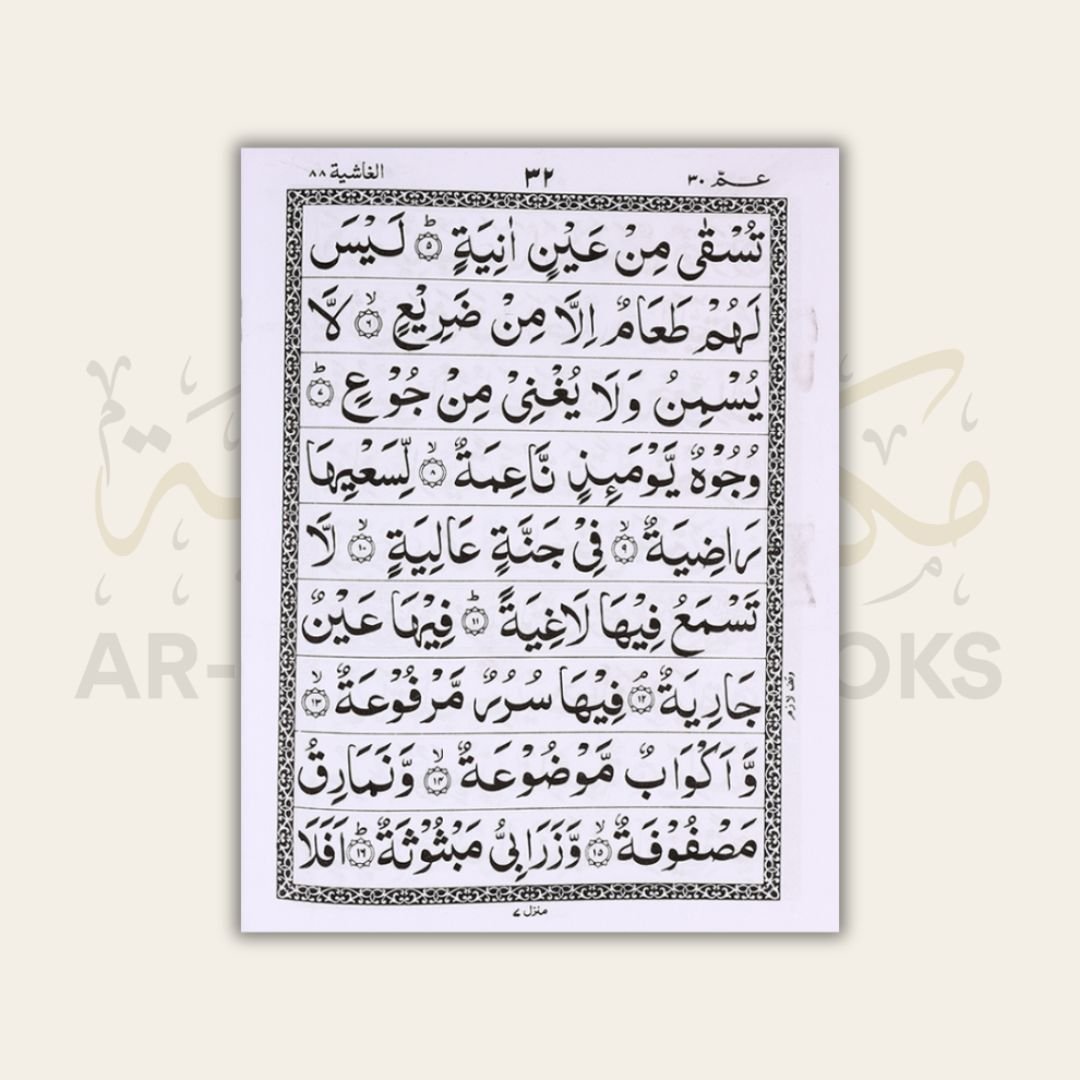 عـــمّ ٣٠
٣٢
الغاشية ٨٨
تُسْقٰى مِنْ عَيْنٍ اٰنِيَةٍ ؕ ۝٥ لَـيْسَ
لَهُمْ طَعَامٌ اِلَّا مِنْ ضَرِيْعٍ ۙ ۝٦ لَّا
يُسْمِنُ وَلَا يُغْنِىْ مِنْ جُوْعٍ ؕ ۝٧
وُجُوْهٌ يَّوْمَىِٕذٍ نَّاعِمَةٌ ۙ ۝٨ لِّسَعْيِهَا
رَاضِيَةٌ ۙ ۝٩ فِىْ جَنَّةٍ عَالِيَةٍ ۙ ۝١٠ لَّا
تَسْمَعُ فِيْهَا لَاغِيَةً ؕ ۝١١ فِيْهَا عَيْنٌ
جَارِيَةٌ ۘ ۝١٢ فِيْهَا سُرُرٌ مَّرْفُوْعَةٌ ۙ ۝١٣
وَّ اَكْوَابٌ مَّوْضُوْعَةٌ ۙ ۝١٤ وَّنَمَارِقُ
مَصْفُوْفَةٌ ۙ ۝١٥ وَّزَرَابِىُّ مَبْثُوْثَةٌ ؕ ۝١٦ اَفَلَا
وقف لازم
منزل ٧
AR- OKS